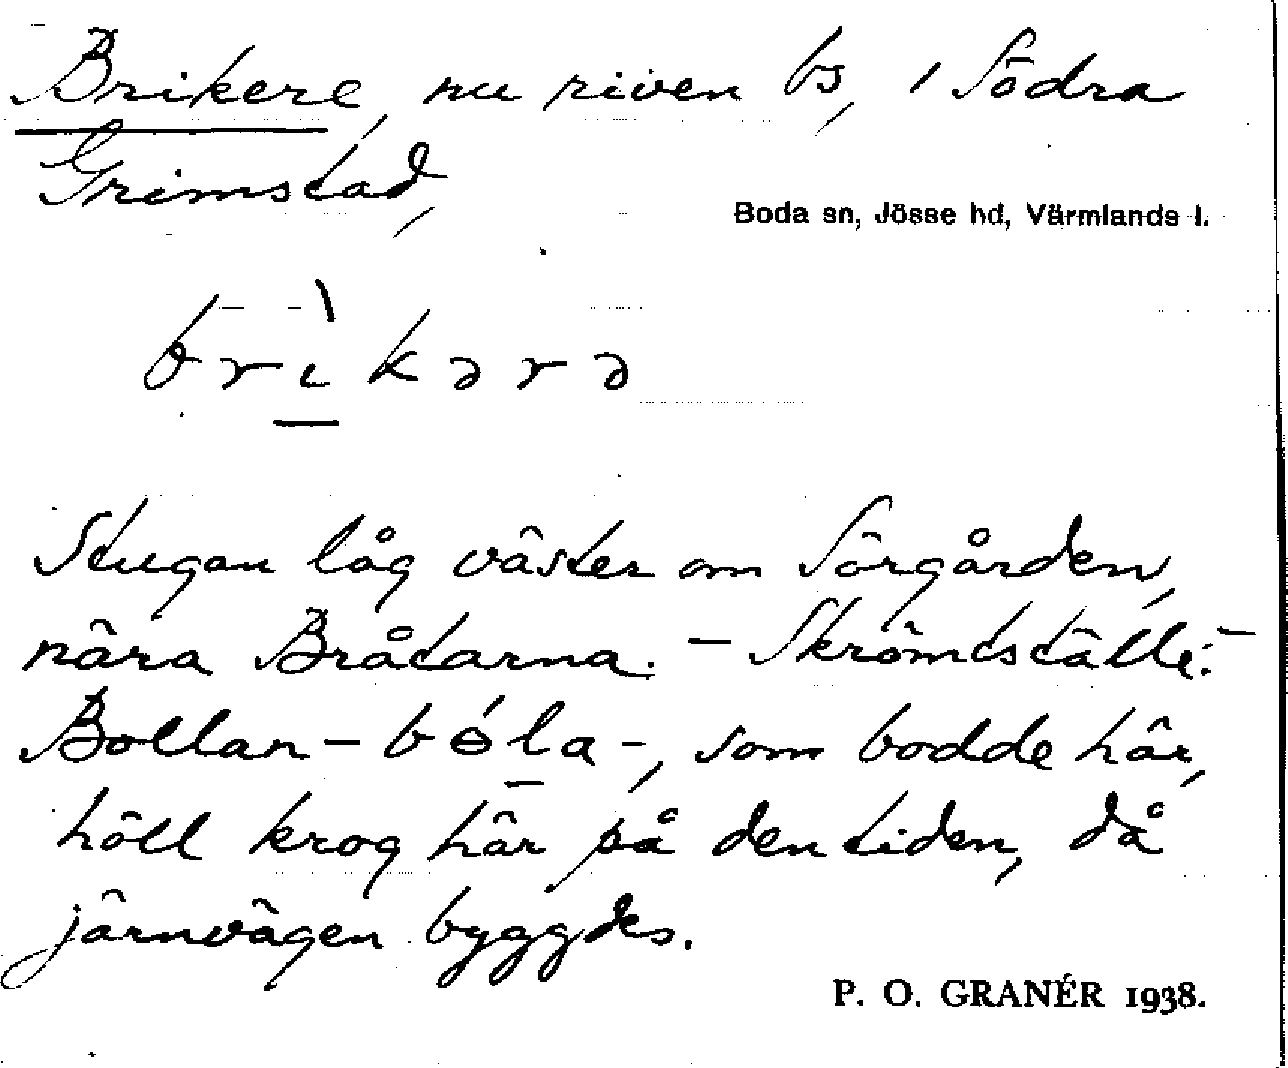 Brikere, nu riven bs, i Södra
Grimstad,
Boda sn, Jösse hd, Värmlands l.
brìkərə
Stugan låg väster om Sörgården,
nära Bråtarna. – Skrömtställe. –
Bollan – bóla –, som bodde här,
höll krog här på den tiden, då
järnvägen byggdes.
P. O. GRANÉR 1938.